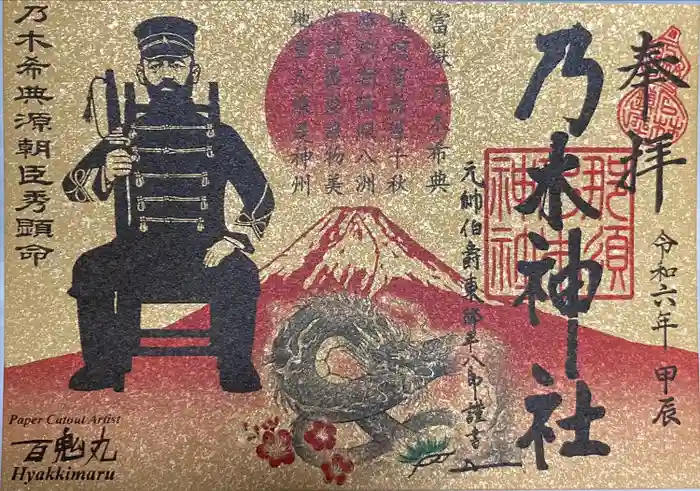 奉拝
令和六年 甲辰
乃木神社
那須乃木神社
元帥伯爵東郷平八郎謹書
富嶽 乃木希典
崚嶒富嶽聳千秋
赫灼朝暉照八洲
休説區區風物美
地靈人傑是神州
乃木希典源朝臣秀顕命
Paper Cutout Artist
百鬼丸
Hyakkimaru